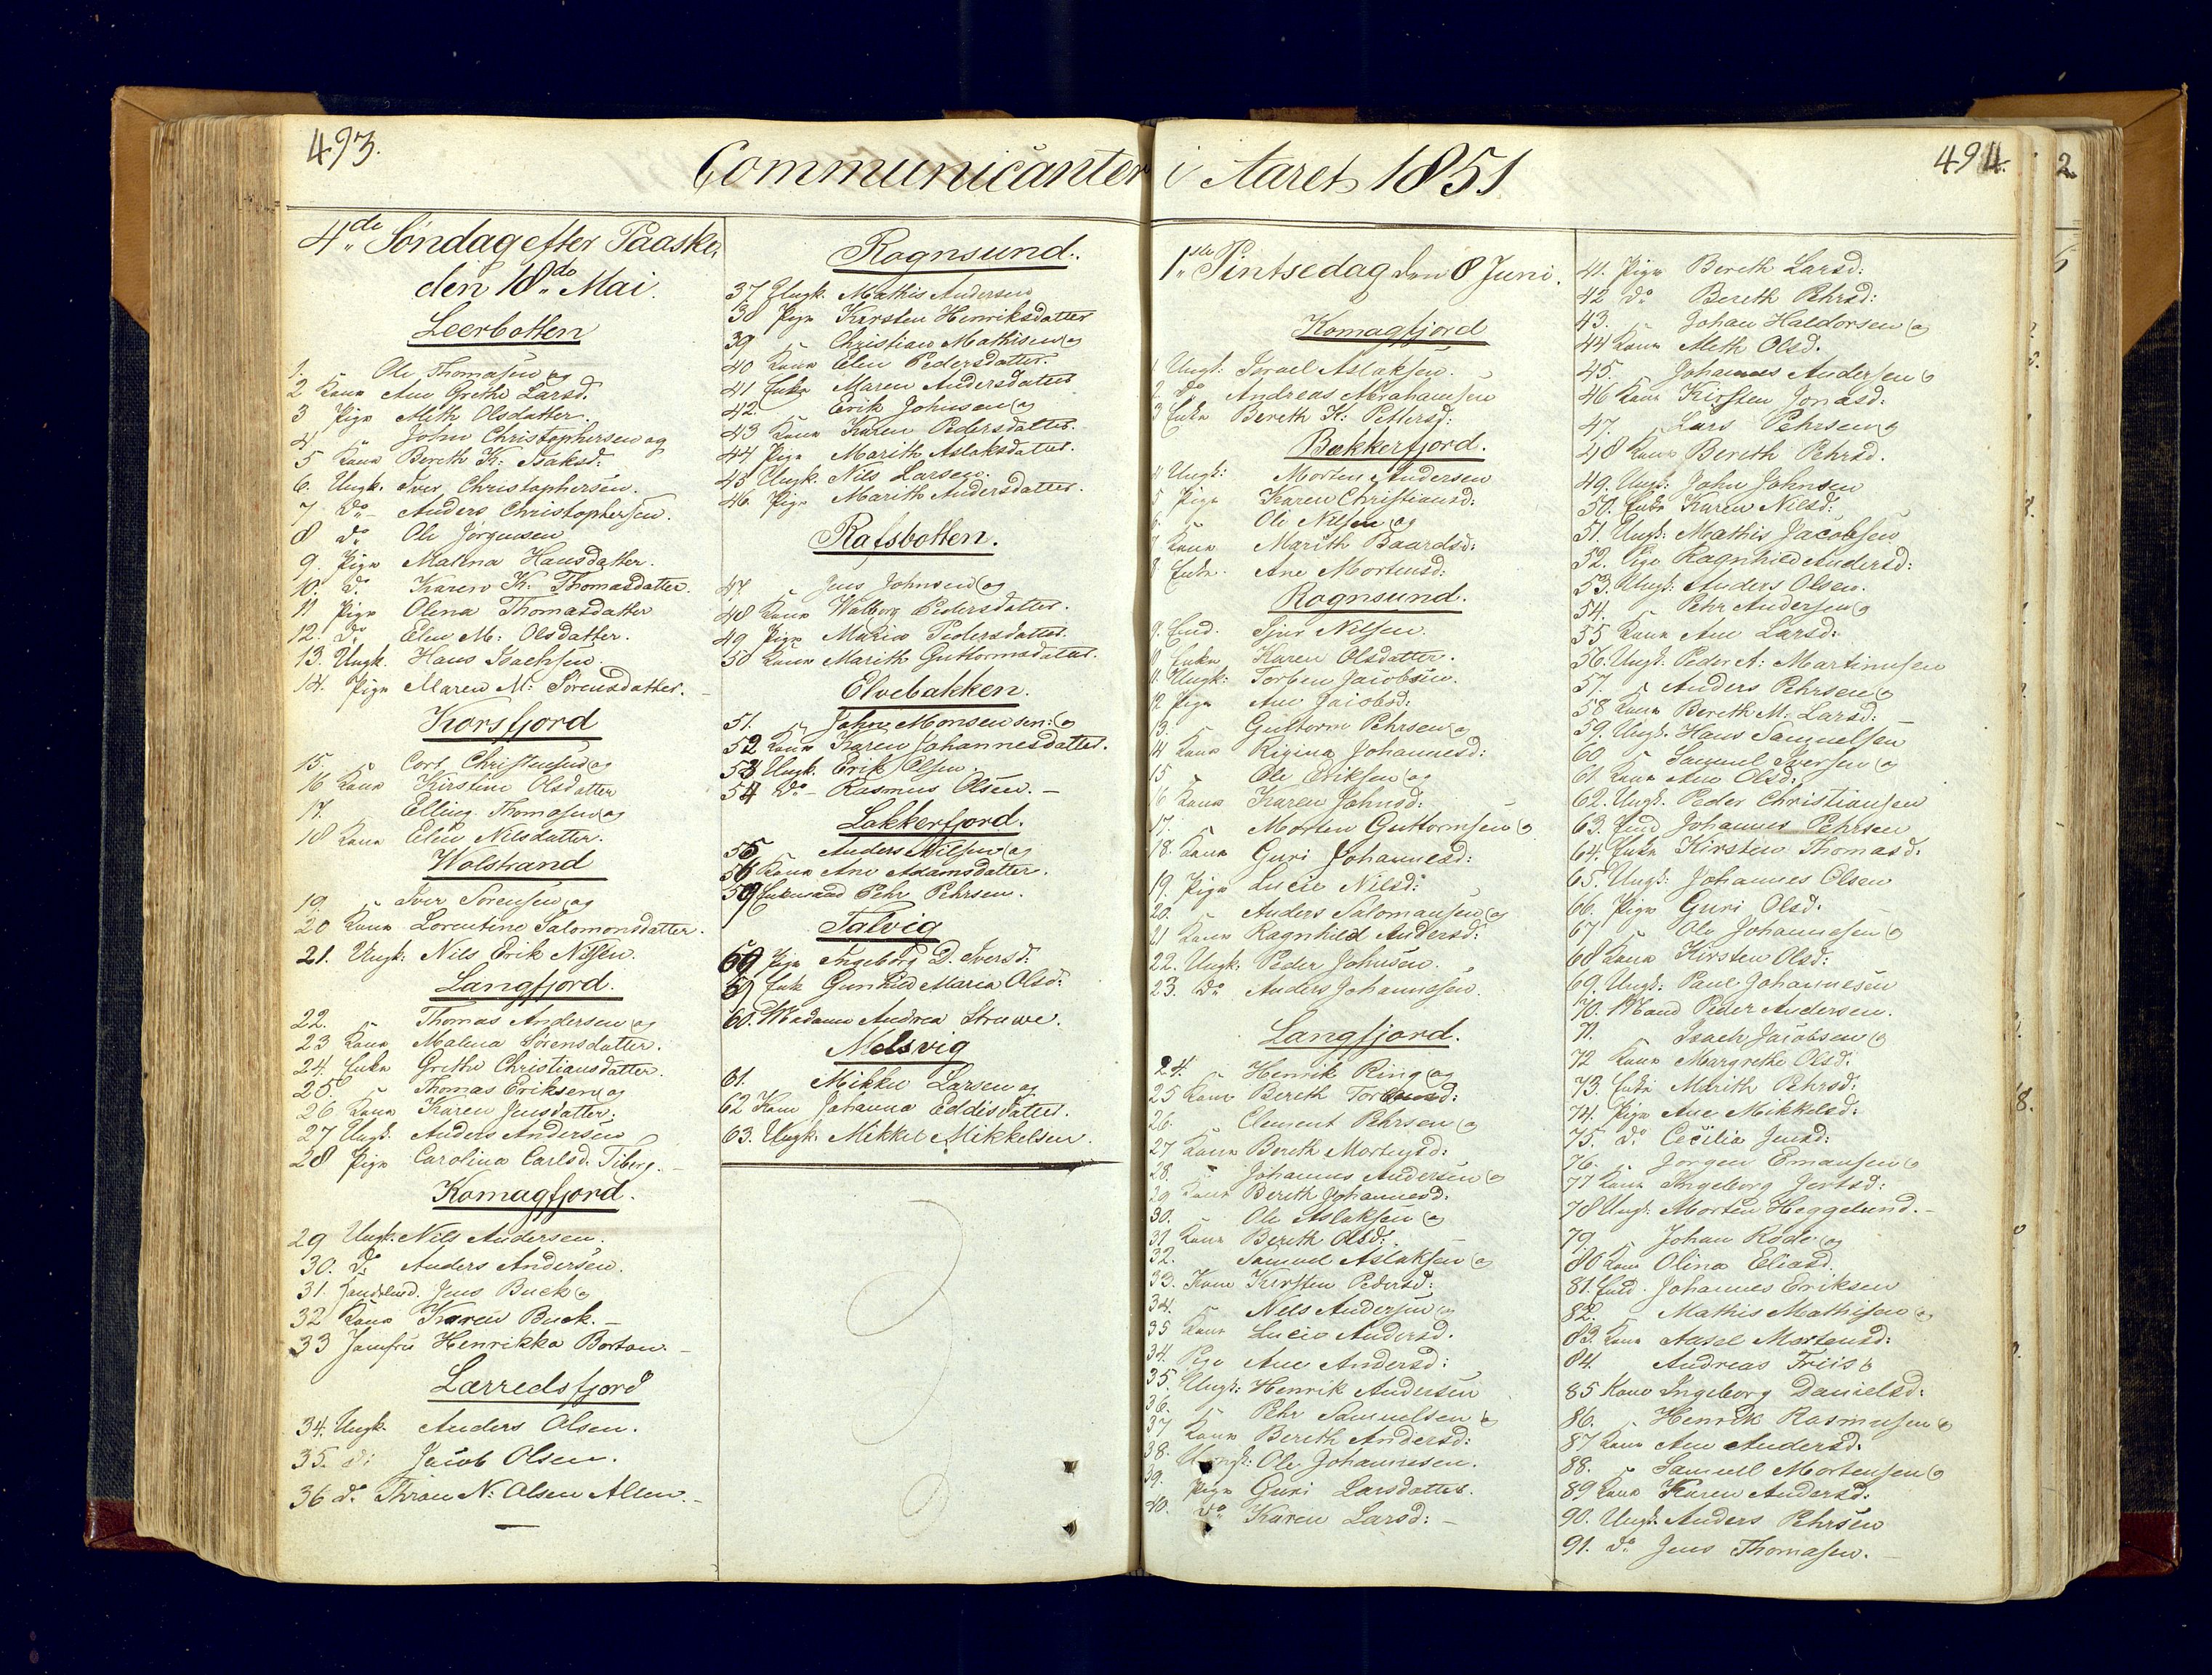 493.
Communicanter i Aaret 1851
494.
2.
4de Søndag efter Paaske,
den 18de Mai.
Leerbotten
1. " Ole Thomasen og
2 Kone Ane Grethe Larsd.
3 Pige Meth Olsdatter.
4 " John Christophersen og
5 Kone Bereth K: Isaksd:
6. Ungk. Iver Christophersen.
7 Do Anders Christophersen.
8 do Ole Jørgensen
9. Pige Malena Hansdatter.
10. Do Karen K: Thomasdatter.
11 Pige Olena Thomasdatter
12. Do Elen M: Olsdatter.
13. Ungk. Hans Isachsen.
14. Pige Maren M: Sørensdatter.
Korsfjord
15. " Corl Christensen og
16 Kone Kirstine Olsdatter
17. " Elling Thomasen og
18 Kone Elen Nilsdatter.
Wolstrand
19 " Iver Sørensen og
20 Kone Lorentine Salomonsdatter.
21. Ungk: Nils Erik Nilsen.
Langfjord.
22. " Thomas Andersen og
23 Kone Malena Sørensdatter.
24. Enke Grethe Christiansdatter.
25. " Thomas Eriksen og
26 Kone Karen Jensdatter.
27 Ungk. Anders Andersen
28 Pige Carolina Carlsd. Tiberg.
Komagfjord.
29 Ungk. Nils Andersen.
30. Do Anders Andersen.
31. Handelsmd. Jens Buck og
32 Kone Karen Buck.
33 Jomfru Henrikka Bortow.
Lærredsfjord
34. Ungk. Anders Olsen.
35. do Jacob Olsen.
36 do N: Olsen Alten.
Rognsund.
37 Ungk. Mathis Andersen
38 Pige Kirsten Henriksdatter
39 " Christian Mathisen og
40 Kone Elen Pedersdatter.
41 Enke Maren Andersdatter
42. " Erik Johnsen og
43 Kone Karen Pedersdatter.
44 Pige Marith Aslaksdatter.
45 Ungk. Nils Larsen.
46. Pige Marith Andersdatter.
Rafsbotten.
47. " Jens Johnsen og
48 Kone Walborg Pedersdatter.
49 Pige Maria Pedersdatter.
50 Kone Marith Guttormsdatter.
Elvebakken.
51. " John Monsen sen: og
52 Kone Karen Johannesdatter.
53 Ungk. Erik Olsen.
54 Do Rasmus Olsen.
Lakkerfjord.
55 " Anders Nilsen og
56 Kone Ane Adamsdatter.
57 Enkemand Pehr Pehrsen.
Talvig
Pige Ingeborg D. Iversd:
59 Enke Gunhild Maria Olsd:
60. Madame Andrea Struwe.
Melsvig
61. " Mikkel Larsen og
62 Kone Johanna Eddisdatter.
63. Ungk. Mikkel Mikkelsen.
1ste Pintsedag den 8 Juni.
Komagfjord
1 Ungk: Israel Aslaksen.
2 Do Andreas Abrahamsen
3 Enke Bereth K: Pettersd:
Bekkerfjord.
4 Ungk: Morten Andersen
5 Pige Karen Christiansd:
6. " Ole Nilsen og
7 Kone Marith Baardsd:
8 Enke Ane Mortensd:
Rognsund.
9. Emd. Siver Nilsen.
10 Enke Karen Olsdatter.
11. Ungk: Torben Jacobsen.
12 Pige Ane Jacobsd:
13. " Guttorm Pehrsen og
14 Kone Rigina Johannesd:
15 " Ole Eriksen og
16 Kone Karen Johnsd:
17. " Morten Guttormsen og
18. Kone Guri Johannesd:
19. Pige Lucie Nilsd:
20. " Anders Salomonsen og
21 Kone Ragnhild Andersd:
22. Ungk: Peder Johnsen.
23. Do Anders Johannesen.
Langfjord.
24. " Henrik Ring og
25 Kone Bereth
26. " Clement Pehrsen og
27 Kone Bereth Mortensd:
28. " Johannes Andersen og
29 Kone Bereth Johannesd.
30. " Ole Aslaksen og
31 Kone Bereth Olsd:
32. " Samuel Aslaksen og
33. Kone Kirsten Pedersd:
34. " Nils Andersen og
35 Kone Lucie Andersd.
34. Pige Ane Andersd:
35. Ungk: Henrik Andersen
36. " Pehr Samuelsen og
37 Kone Bereth Andersd:
38. Ungk: Ole Johannesen.
39. Pige Guri Larsdatter.
40. Do Karen Larsd:
41. Pige Bereth Larsd:
42 Do Bereth Pehrsd:
43. " Johan Haldorsen og
44 Kone Meth Olsd.
45. " Johannes Andersen og
46 Kone Kirsten Jonasd:
47. " Lars Pehrsen og
48 Kone Bereth Pehrsd.
49. Ungk: John Johnsen
50. Enke Karen Nilsd:
51. Ungk: Mathis Jacobsen
52. Pige Ragnhild Andersd:
53. Ungk: Anders Olsen.
54. " Pehr Andersen og
55 Kone Ane Larsd:
56. Ungk. Peder A: Martinusen
57. " Anders Pehrsen og
58 Kone Bereth M: Larsd:
59. Ungk. Hans Samuelsen
60 " Samuel Iversen og
61 Kone Ane Olsd:
62. Ungk. Peder Christiansen
63. Emd Johannes Pehrsen
64. Enke Kirstine Thomasd.
65. Ungk: Johannes Olsen
66. Pige Guri Olsd.
67 " Ole Johannesen og
68 Kone Kirsten Olsd:
69. Ungk: Paul Johannesen
70. Mand Peder Andersen.
71. " Isach Jacobsen og
72 Kone Margrethe Olsd.
73. Enke Marith Pehrsd:
74. Pige Ane Mikkelsd:
75. Do Cecilia Jensd:
76. " Jørgen Emausen og
77 Kone Ingeborg Jertsd:
78 Ungk. Morten Heggelund.
79 " Johan Røde og
80 Kone Olina Eliasd.
81. Emd. Johannes Eriksen
82. " Mathis Mathisen og
83. Kone Aasel Mortensd:
84. Andreas Friis og
85 Kone Ingeborg Danielsd:
86. " Henrik Rasmusen og
87 Kone Ane Andersd.
88. " Samuel Mortensen og
89 Kone Karen Andersd:
90. Ungk. Anders Pehrsen
91. Do Jens Thomasen.